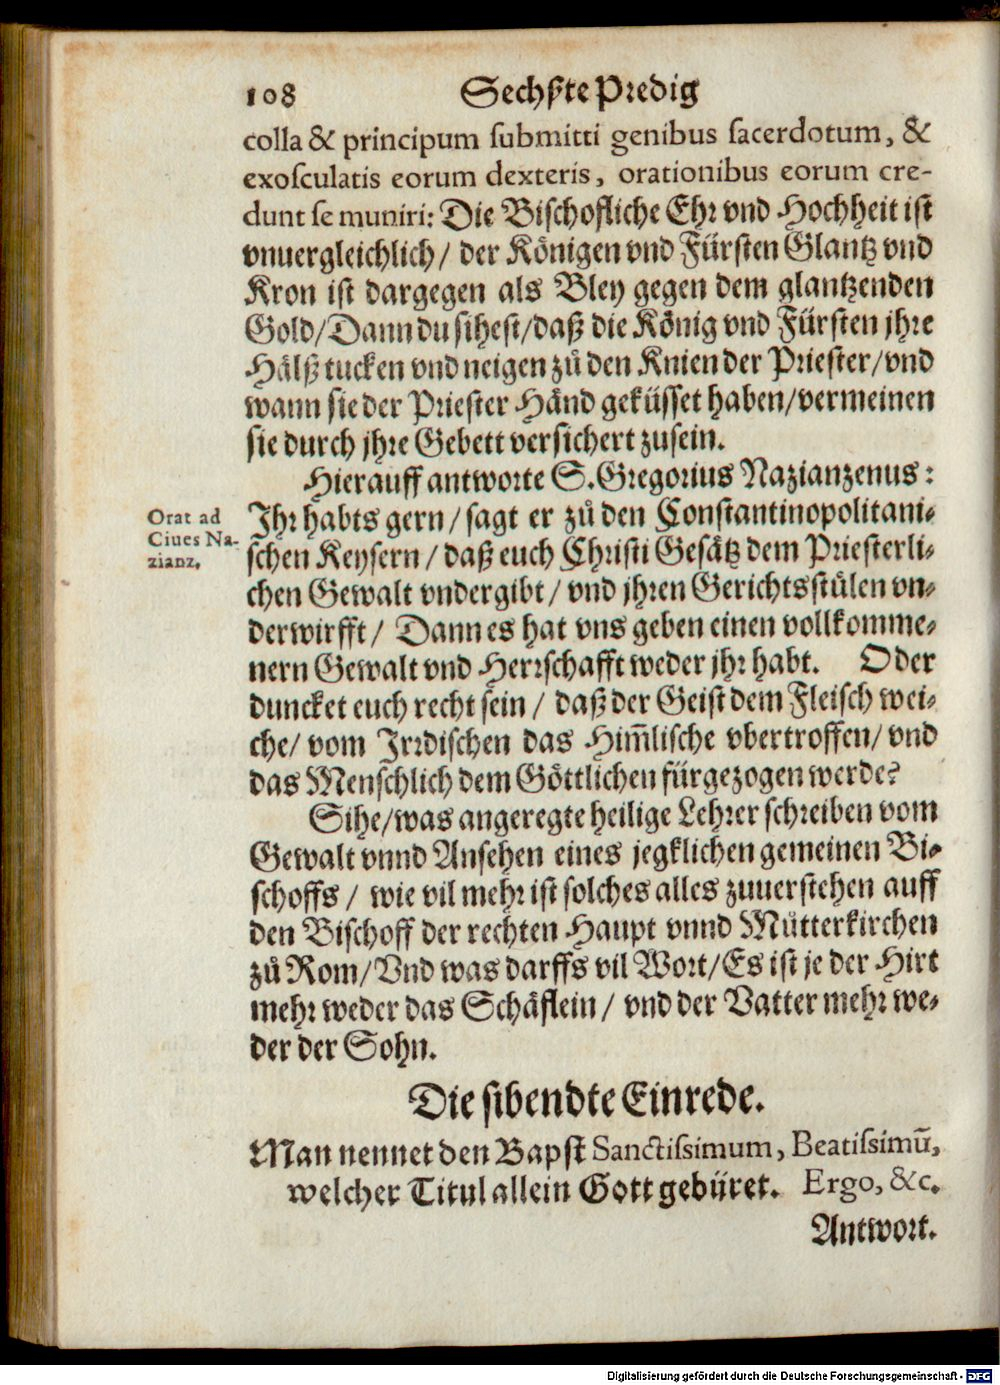 108 Sechßte Predig
colla & principum ſubmitti genibus ſacerdotum, &
exoſculatis eorum dexteris, orationibus eorum cre-
dunt ſe muniri: Die Biſchofliche Ehr vnd Hochheit iſt
vnuergleichlich/ der Königen vnd Fürſten Glantz vnd
Kron iſt dargegen als Bley gegen dem glantzenden
Gold/Dann du siheſt/daß die König vnd Fürſten jhre
Hälß tucken vnd neigen zů den Knien der Prieſter/vnd
wann sie der Prieſter Händ geküſſet haben/vermeinen
sie durch jhre Gebett verſichert zuſein.
Hierauff antworte S. Gregorius Nazianzenus:
Orat ad
Ciues Na-
zianz.
Ihr habts gern/ ſagt er zů den Conſtantinopolitani-
ſchen Keyſern/ daß euch Chriſti Geſätz dem Prieſterli-
chen Gewalt vndergibt/ vnd jhren Gerichtsſtůlen vn-
derwirfft/ Dann es hat vns geben einen vollkomme-
nern Gewalt vnd Herrſchafft weder jhr habt. Oder
duncket euch recht ſein/ daß der Geiſt dem Fleiſch wei-
che/ vom Irrdiſchen das Him̃liſche vbertroffen/ vnd
das Menſchlich dem Göttlichen fürgezogen werde?
Sihe/was angeregte heilige Lehrer ſchreiben vom
Gewalt vnnd Anſehen eines jegklichen gemeinen Bi-
ſchoffs/ wie vil mehr iſt ſolches alles zuuerſtehen auff
den Biſchoff der rechten Haupt vnnd Můtterkirchen
zů Rom/Vnd was darffs vil Wort/Es iſt je der Hirt
mehr weder das Schäflein/ vnd der Vatter mehr we-
der der Sohn.
Die ſibendte Einrede.
Man nennet den Bapſt Sanctiſsimum, Beatiſsimū,
welcher Titul allein Gott gebüret. Ergo, &c.
Antwort.
Digitalisierung gefördert durch die Deutsche Forschungsgemeinschaft - DFG